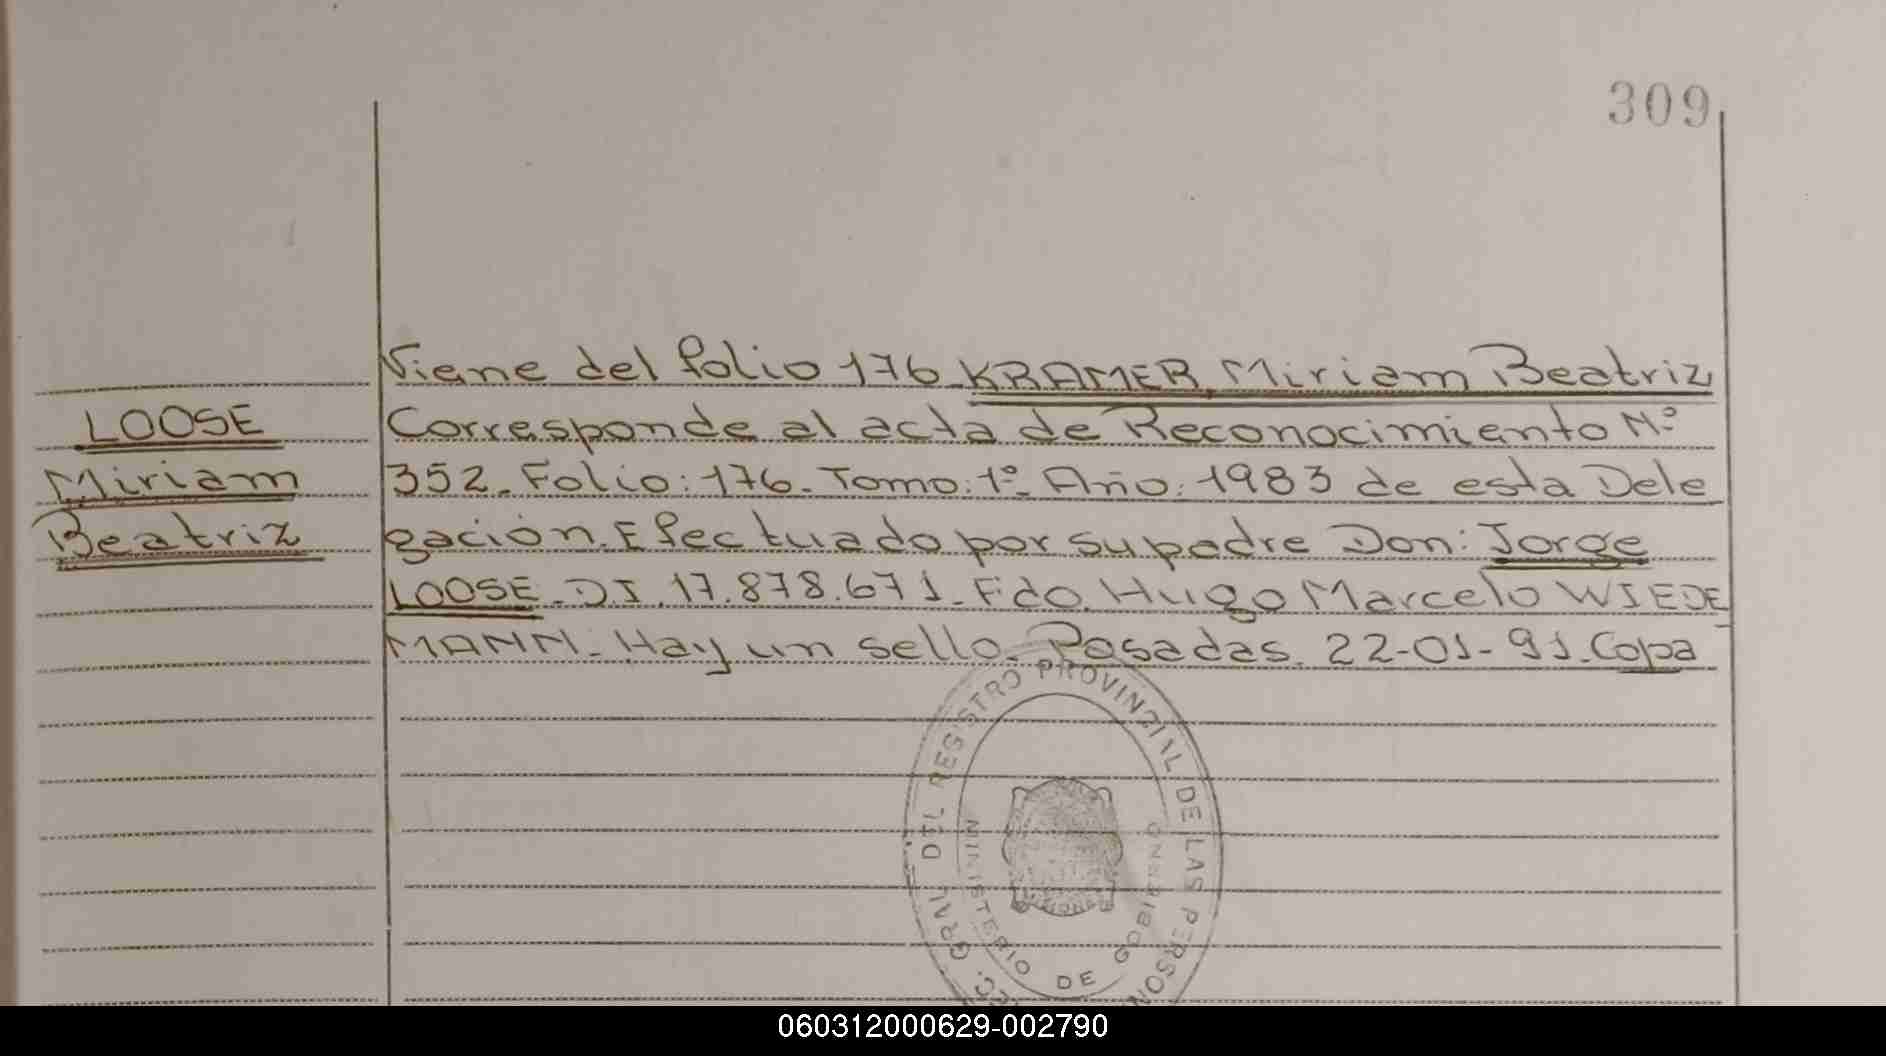 309
Viene del folio 176 KRAMER, Miriam Beatriz
LOOSE
Corresponde al acta de Reconocimiento N°
Miriam
352. Folio: 176. Tomo: 1°. Año: 1983 de esta Dele
Beatriz
gación. Efectuado por su padre Don: Jorge
LOOSE. DI. 17.878.671. Fdo. Hugo Marcelo WIEDE
MANN. Hay un sello. Posadas. 22-01-91. Copa
GRAL. DEL REGISTRO PROVINCIAL DE LAS PERSON
MINISTERIO DE GOBIERNO
060312000629-002790